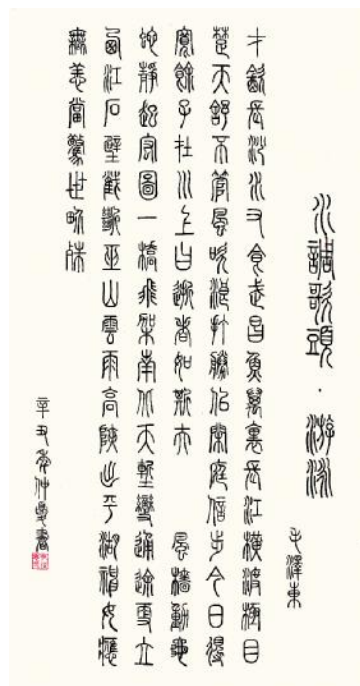 水調歌頭·游泳
毛澤東
才飲長沙水又食武昌魚萬裏長江橫渡極目
楚天舒不管風吹浪打勝似閑庭信步今日得
寬餘子在川上曰逝者如斯夫 風檣動龜
蛇靜起宏圖一橋飛架南北天塹變通途更立
西江石壁截斷巫山雲雨高峽出平湖神女應
無恙當驚世界殊
辛丑年仲夏書